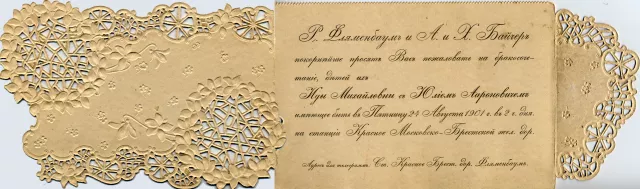 Р. Фляменбаумъ и А. и Х. Байгеръ
покорнѣйше просятъ Васъ пожаловать на бракосоче-
таніе, дѣтей ихъ
Михайловны съ Юліемъ Аароновичемъ
имѣющее быть въ Пятницу 24 Августа 1901 г. въ 2 ч. дня
на станціи Красное Московско-Брестской жел. дор.
Адресъ для телеграммъ: Ст. Красное Брест. дор. Фляменбаумъ.